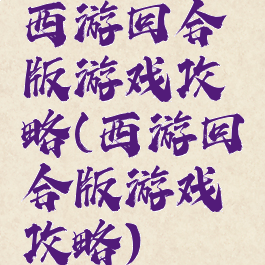 西游回合
版游戏攻
略(西游回
合版游戏
攻略)